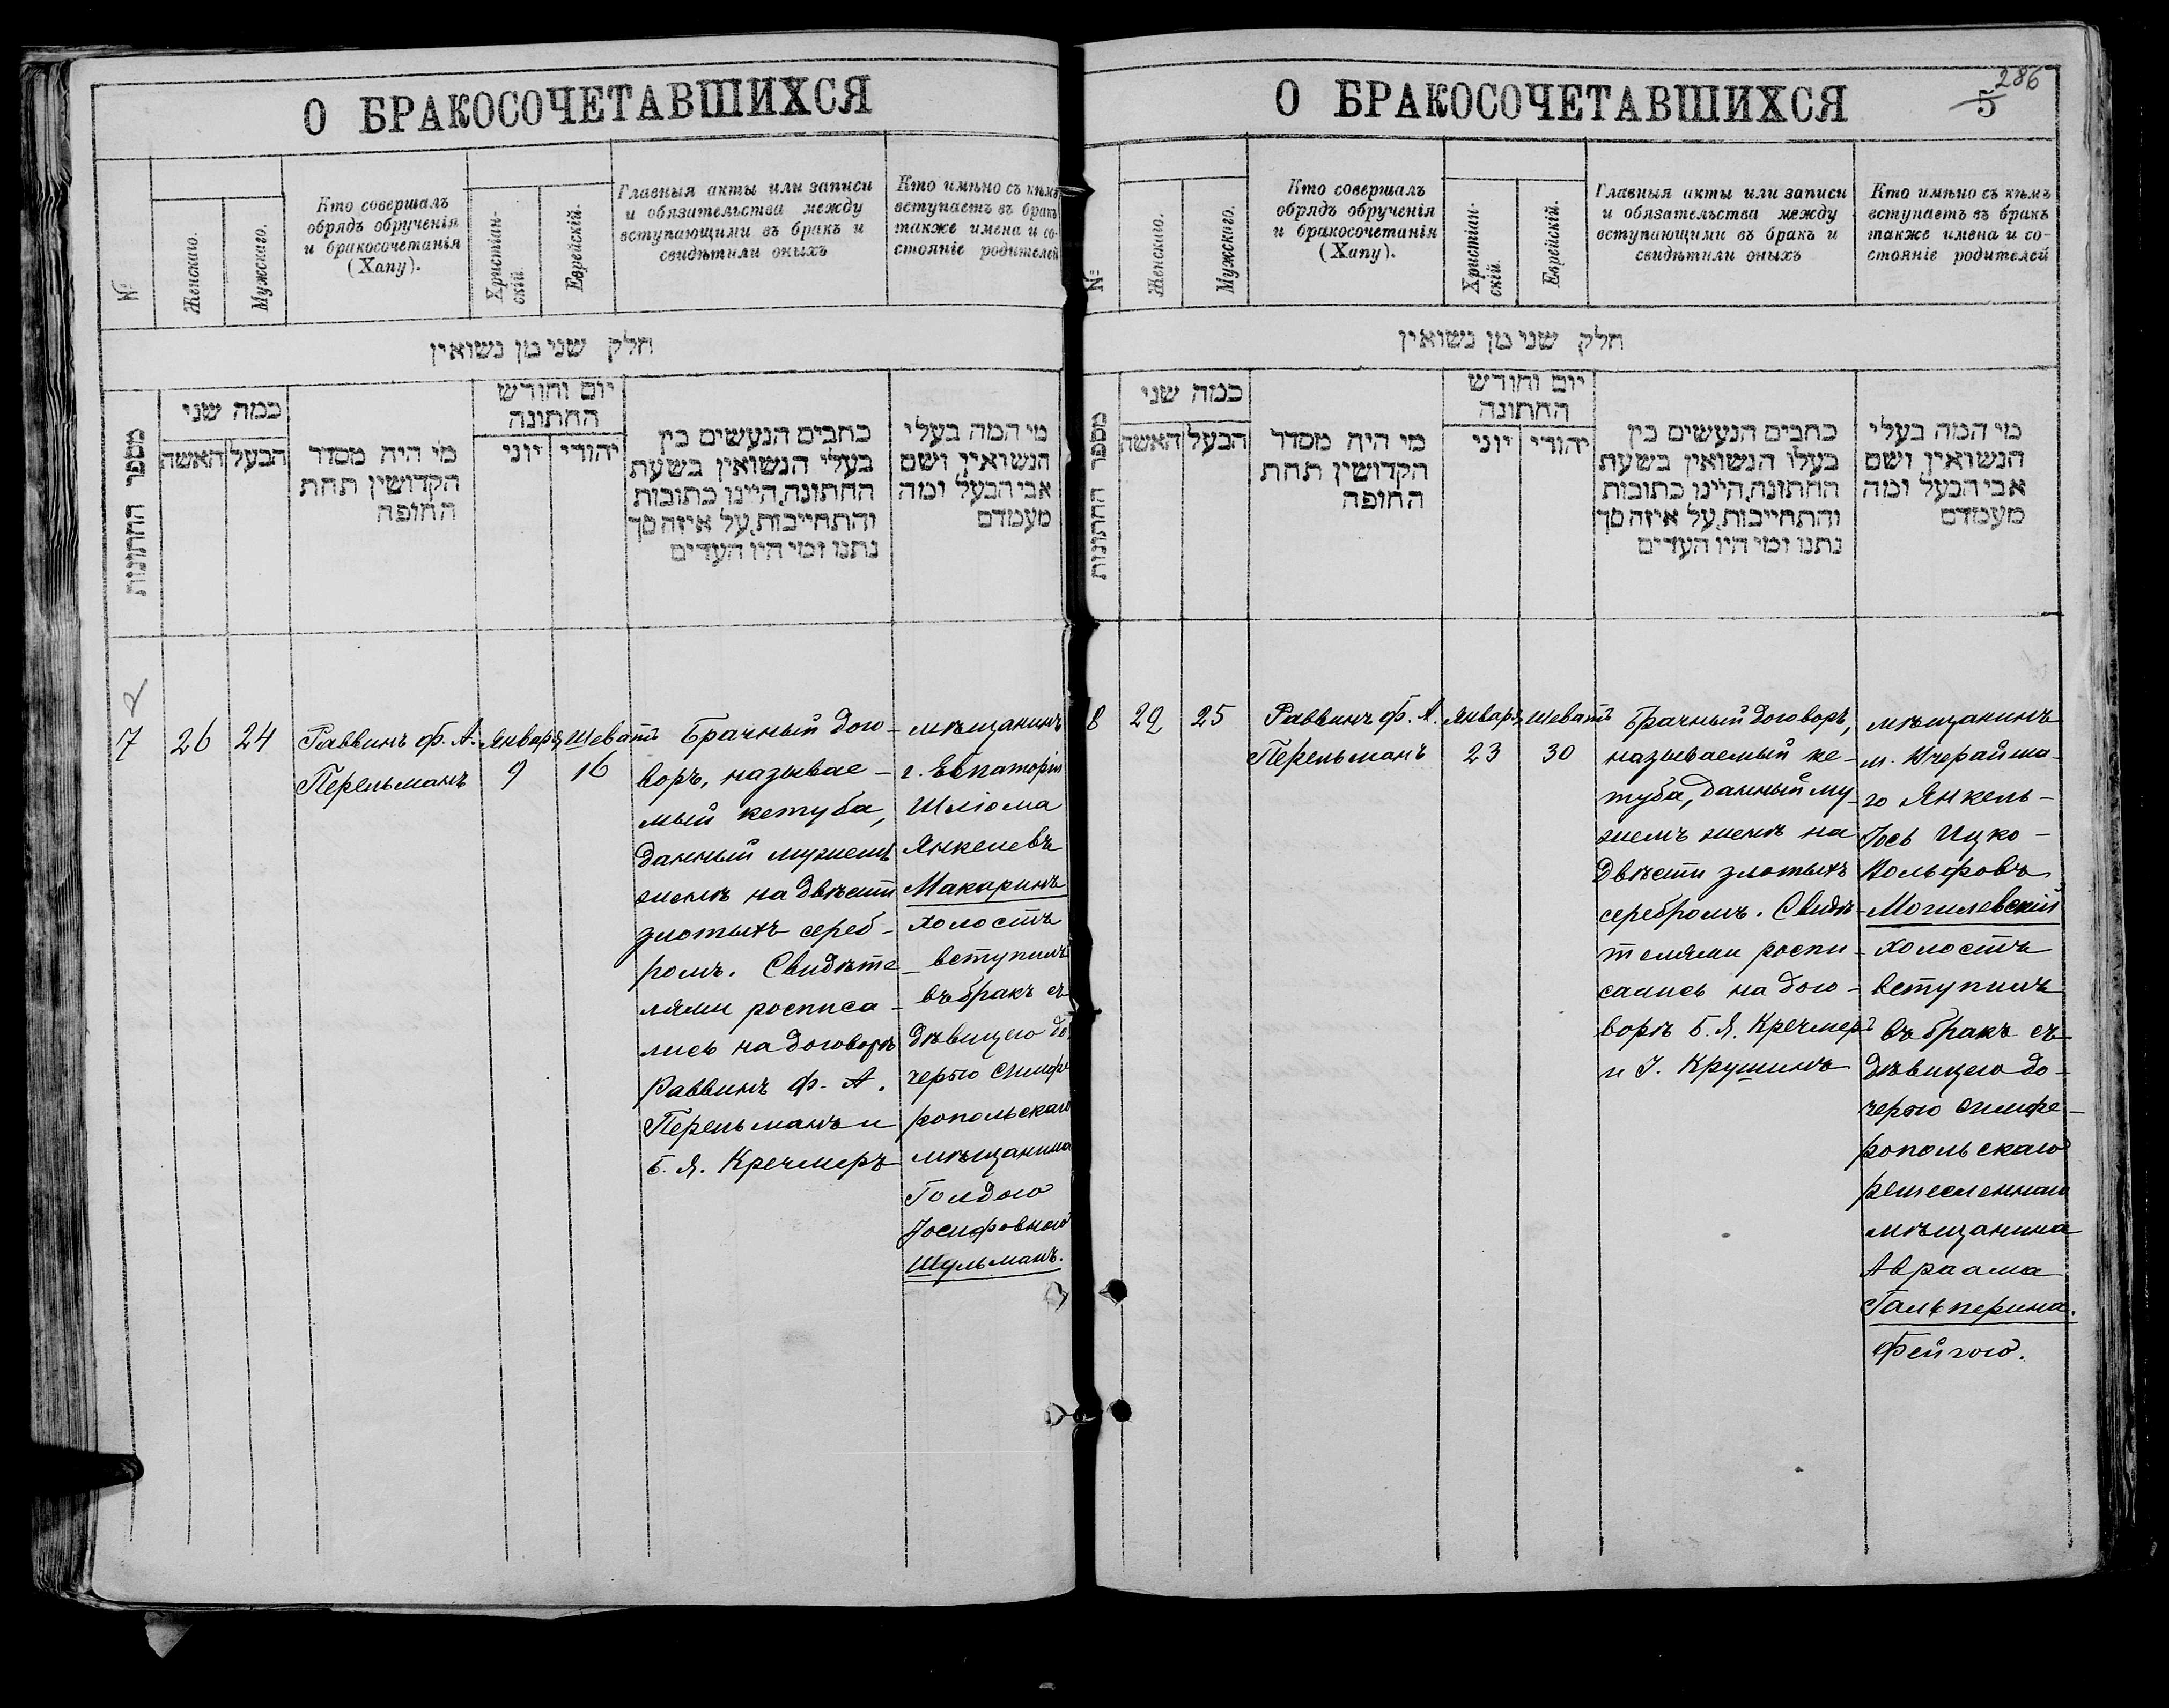 О БРАКОСОЧЕТАВШИХСЯ
№
Женскаго.
Мужскаго.
Кто совершалъ
обрядъ обрученія
и бракосочетанія
(Хапу).
Христіан-
скій.
Еврейскій.
Главныя акты или записи
и обязательства между
вступающими въ бракъ и
свидѣтили оныхъ
Кто имѣно съ кѣмъ
вступаетъ въ бракъ
также имена и со-
стояніе родителей
חלק שני מן נשואין
מספר החתונות
כמה שני
האשה
הבעל
מי היה מסדר
הקדושין תחת
החופה
יום וחודש
החתונה
יוני
יהודי
כתבים הנעשים בין
בעלי הנשואין בשעת
החתונה, היינו כתובות
והתחייבות, על איזה סך
נתנו ומי היו העדים
מי המה בעלי
הנשואין ושם
אבי הבעל ומה
מעמדם
7
26
24
Раввинъ Ф. А.
Перельманъ
Январь
9
Шеватъ
16
Брачный дого-
воръ, называе-
мый кетуба,
данный мужемъ
женѣ на двѣсти
злотыхъ сереб-
ромъ. Свидѣте-
лями росписа-
лись на договорѣ
Раввинъ Ф. А.
Перельманъ и
Б. Я. Кречмеръ
мѣщанинъ
г. Евпаторіи
Шліома
Янкелевъ
Макаринъ
холостъ
вступилъ
въ бракъ съ
дѣвицею до-
черью Симфе
ропольскаго
мѣщанина
Голдою
Іосифовною
Шульманъ.
О БРАКОСОЧЕТАВШИХСЯ
286
5
№
Женскаго.
Мужскаго.
Кто совершалъ
обрядъ обрученія
и бракосочетанія
(Хапу).
Христіан-
скій.
Еврейскій.
Главныя акты или записи
и обязательства между
вступающими въ бракъ и
свидѣтили оныхъ
Кто имѣно съ кѣмъ
вступаетъ въ бракъ
также имена и со-
стояніе родителей
חלק שני מן נשואין
מספר החתונות
כמה שני
האשה
הבעל
מי היה מסדר
הקדושין תחת
החופה
יום וחודש
החתונה
יוני
יהודי
כתבים הנעשים בין
בעלו הנשואין בשעת
החתונה, היינו כתובות
והתחייבות, על איזה סך
נתנו ומי היו העדים
מי המה בעלי
הנשואין ושם
אבי הבעל ומה
מעמדם
8
29
25
Раввинъ Ф. А.
Перельманъ
Январь
23
Шеватъ
30
Брачный договоръ,
называемый ке-
туба, данный му-
жемъ женѣ на
двѣсти злотыхъ
серебромъ. Свидѣ-
телями роспи-
сались на дого-
ворѣ Б. Я. Кречмеръ
и І. Крушинъ
мѣщанинъ
м. Вчерайша-
го Янкель-
Іось Ицко-
Вольфовъ
Могилевскій
холостъ
вступилъ
въ бракъ съ
дѣвицею до-
черью Симфе-
ропольскаго
ремесленнаго
мѣщанина
Авраама
Гальперина.
Фейгою.